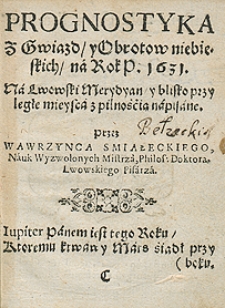 PROGNOSTYKA
Z Gwiazd/ y Obrotow niebie-
skich/ ná Rok P. 1631.
Ná Lwowski Merydyan y blisko przy
ległe mieyscá z pilnośćią nápisáne.
Przez
WAWRZYNCA SMIAŁECKIEGO,
Náuk Wyzwolonych Mistrzá, Philos: Doktorá,
Lwowskiego Pisárzá.
Iupiter Pánem iest tego Roku/
Ktoremu krwáwy Márs siádł przy
(boku.